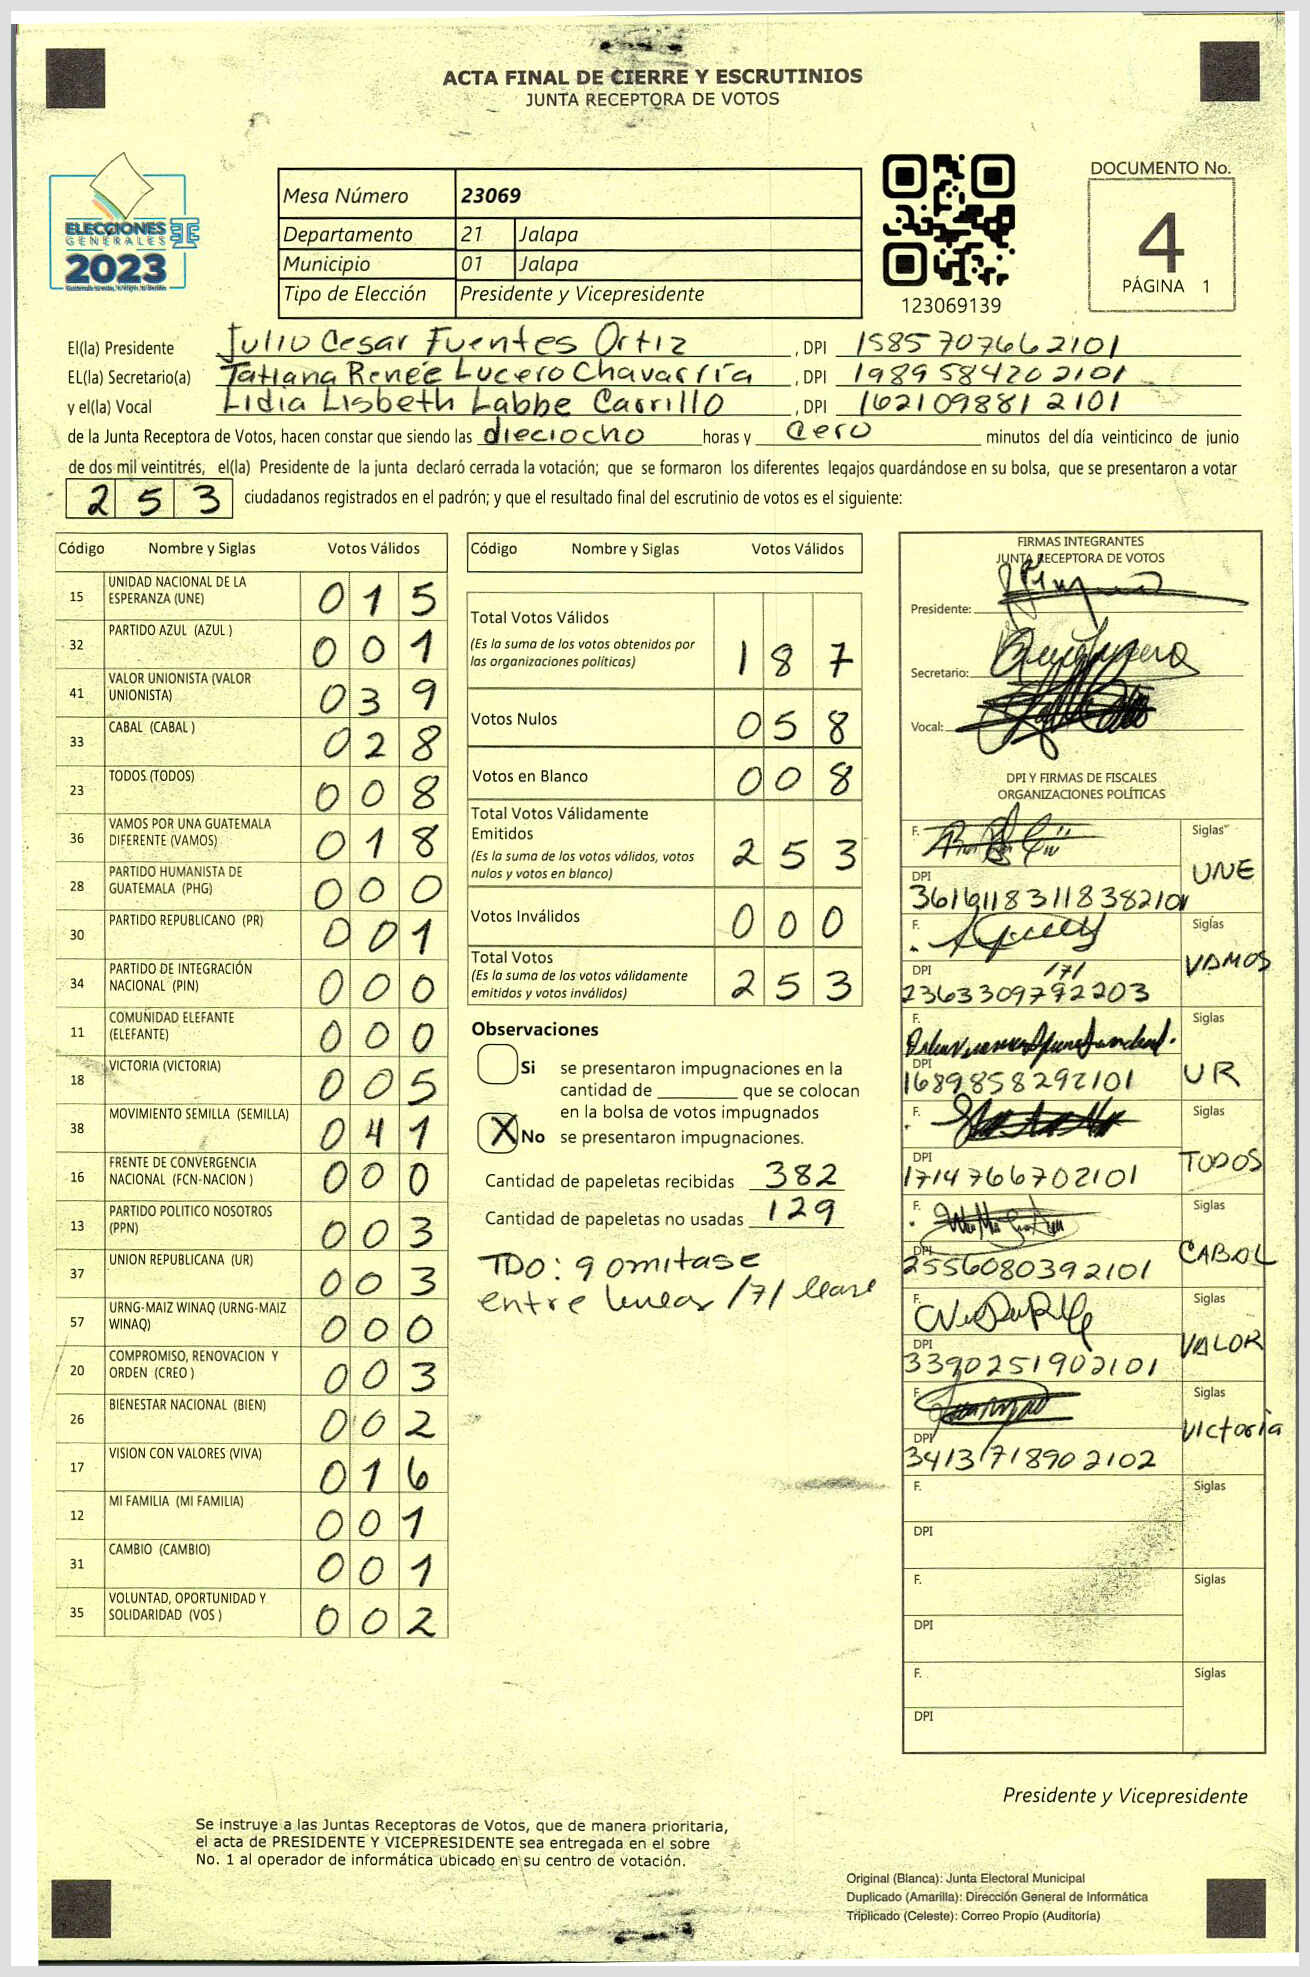 ACTA FINAL DE CIERRE Y ESCRUTINIOS
JUNTA RECEPTORA DE VOTOS
ELECCIONES
GENERALES
2023
Mesa Número 23069
Departamento 21 Jalapa
Municipio 01 Jalapa
Tipo de Elección Presidente y Vicepresidente
123069139
DOCUMENTO No.
4
PÁGINA 1
El(la) Presidente Julio Cesar Fuentes Ortiz , DPI 1585707662101
EL(la) Secretario(a) Tatiana Renée Lucero Chavarría , DPI 1989584202101
y el(la) Vocal Lidia Lisbeth Labbe Carrillo , DPI 1621098812101
de la Junta Receptora de Votos, hacen constar que siendo las dieciocho horas y cero minutos del día veinticinco de junio
de dos mil veintitrés, el(la) Presidente de la junta declaró cerrada la votación; que se formaron los diferentes legajos guardándose en su bolsa, que se presentaron a votar
253 ciudadanos registrados en el padrón; y que el resultado final del escrutinio de votos es el siguiente:
Código Nombre y Siglas Votos Válidos
15 UNIDAD NACIONAL DE LA ESPERANZA (UNE) 015
32 PARTIDO AZUL (AZUL ) 001
41 VALOR UNIONISTA (VALOR UNIONISTA) 039
33 CABAL (CABAL ) 028
23 TODOS (TODOS) 008
36 VAMOS POR UNA GUATEMALA DIFERENTE (VAMOS) 018
28 PARTIDO HUMANISTA DE GUATEMALA (PHG) 000
30 PARTIDO REPUBLICANO (PR) 001
34 PARTIDO DE INTEGRACIÓN NACIONAL (PIN) 000
11 COMUNIDAD ELEFANTE (ELEFANTE) 000
18 VICTORIA (VICTORIA) 005
38 MOVIMIENTO SEMILLA (SEMILLA) 041
16 FRENTE DE CONVERGENCIA NACIONAL (FCN-NACION ) 000
13 PARTIDO POLITICO NOSOTROS (PPN) 003
37 UNION REPUBLICANA (UR) 003
57 URNG-MAIZ WINAQ (URNG-MAIZ WINAQ) 000
20 COMPROMISO, RENOVACION Y ORDEN (CREO ) 003
26 BIENESTAR NACIONAL (BIEN) 002
17 VISION CON VALORES (VIVA) 016
12 MI FAMILIA (MI FAMILIA) 001
31 CAMBIO (CAMBIO) 001
35 VOLUNTAD, OPORTUNIDAD Y SOLIDARIDAD (VOS ) 002
Código Nombre y Siglas Votos Válidos
Total Votos Válidos 187
(Es la suma de los votos obtenidos por
las organizaciones políticas)
Votos Nulos 058
Votos en Blanco 008
Total Votos Válidamente
Emitidos 253
(Es la suma de los votos válidos, votos
nulos y votos en blanco)
Votos Inválidos 000
Total Votos 253
(Es la suma de los votos válidamente
emitidos y votos inválidos)
Observaciones
Si se presentaron impugnaciones en la
cantidad de ________ que se colocan
en la bolsa de votos impugnados
X No se presentaron impugnaciones.
Cantidad de papeletas recibidas 382
Cantidad de papeletas no usadas 129
TDO: 9 omitase
entre lineas /7/ lease
FIRMAS INTEGRANTES
JUNTA RECEPTORA DE VOTOS
Presidente:
Secretario:
Vocal:
DPI Y FIRMAS DE FISCALES
ORGANIZACIONES POLÍTICAS
F. Siglas
UNE
DPI
F. Siglas
VAMOS
DPI /7/
2363309792203
F. Siglas
UR
DPI
1689858292101
F. Siglas
TODOS
DPI
1714766702101
F. Siglas
CABAL
DPI
2556080392101
F. Siglas
VALOR
DPI
3390251902101
F. Siglas
Victoria
DPI
3413718902102
F. Siglas
DPI
F. Siglas
DPI
F. Siglas
DPI
Presidente y Vicepresidente
Se instruye a las Juntas Receptoras de Votos, que de manera prioritaria,
el acta de PRESIDENTE Y VICEPRESIDENTE sea entregada en el sobre
No. 1 al operador de informática ubicado en su centro de votación.
Original (Blanca): Junta Electoral Municipal
Duplicado (Amarilla): Dirección General de Informática
Triplicado (Celeste): Correo Propio (Auditoría)